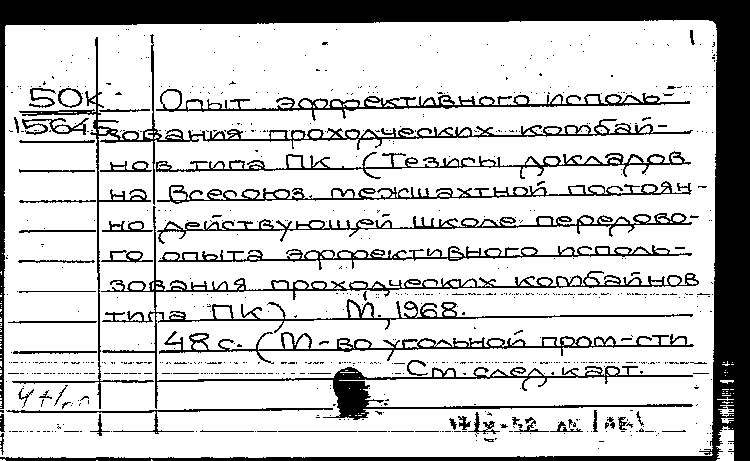 1
50к Опыт эффективного исполь-
15645 зования проходческих комбай-
нов типа ПК. (Тезисы докладов
на Всесоюз. межшахтной постоян-
но действующей школе передово-
го опыта эффективного исполь-
зования проходческих комбайнов
типа ПК). М., 1968.
48 с. (М-во угольной пром-сти
См. след. карт.